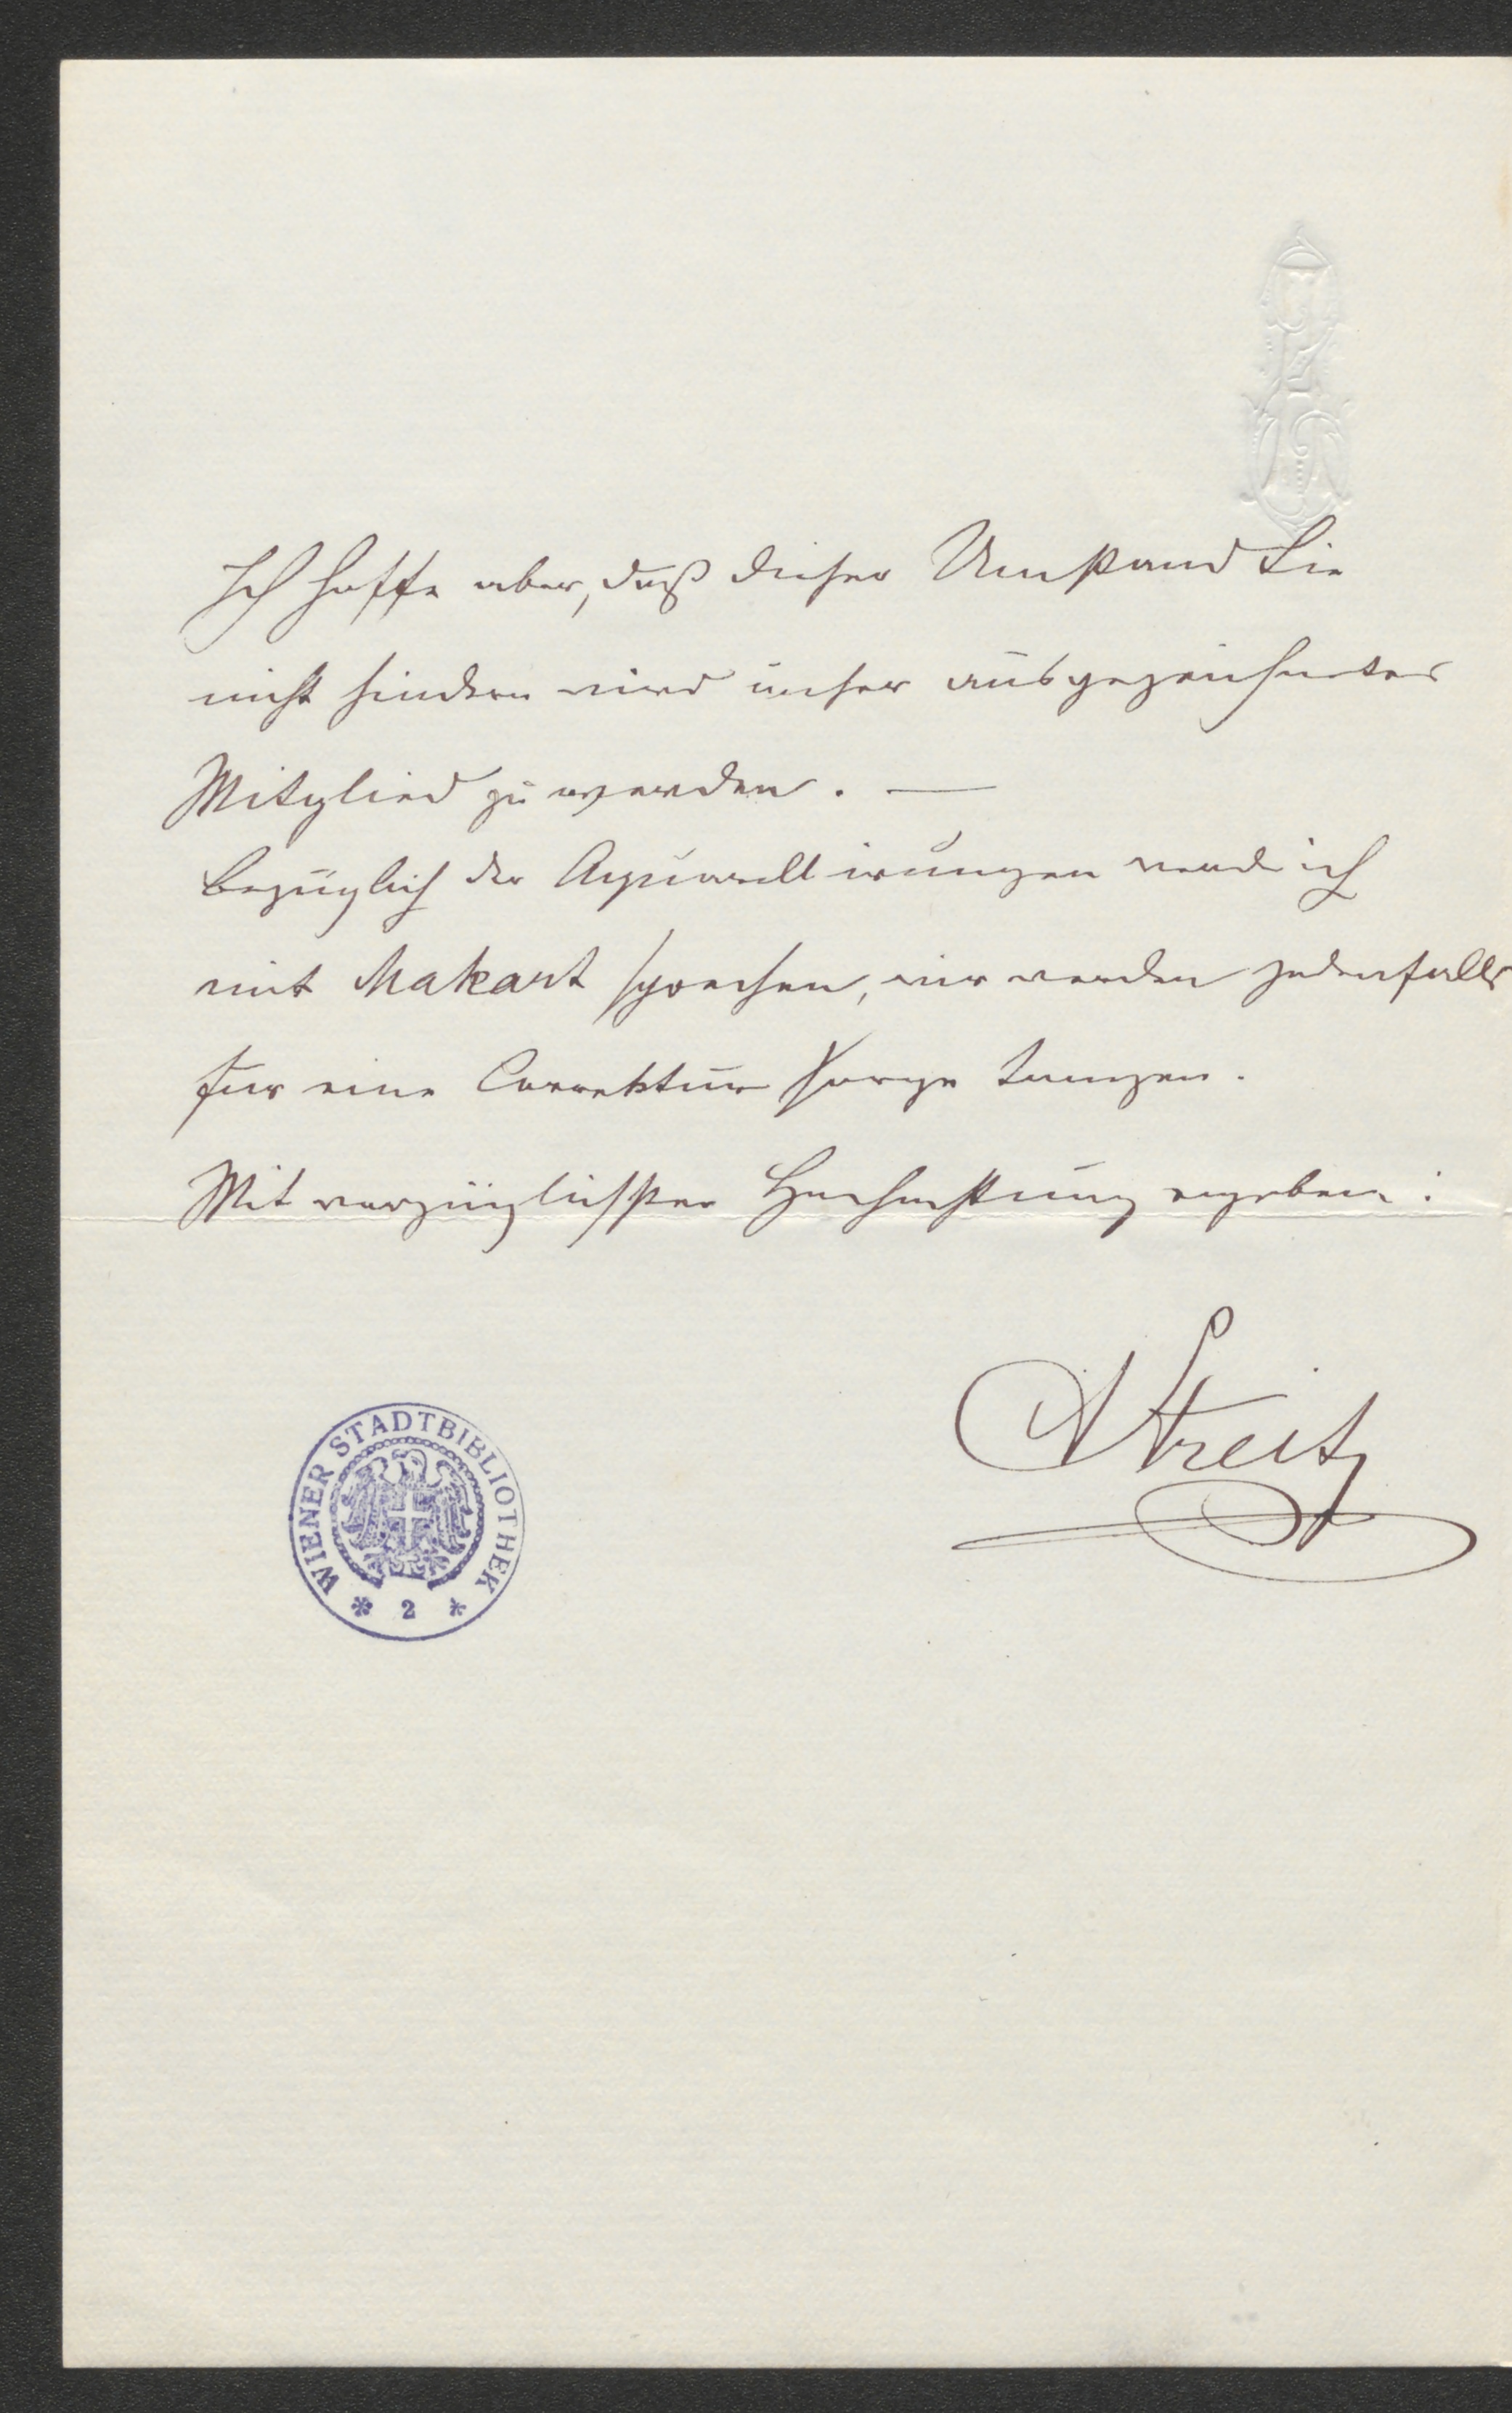 Ich hoffe aber, daß dieser Umstand Sie
nicht hindern wird unser ausgezeichnetes
Mitglied zu werden. —
Bezüglich der Aquarellirungen werde ich
mit Makart sprechen, wir werden jedenfalls
für eine Correktur Sorge tragen.
Mit vorzüglichster Hochachtung ergeben:
AStreit
WIENER STADTBIBLIOTHEK
* 2 *